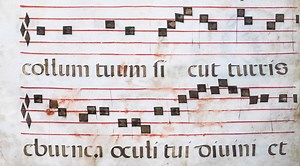 collum tuum si cut turris
eburnea oculi tui divini et